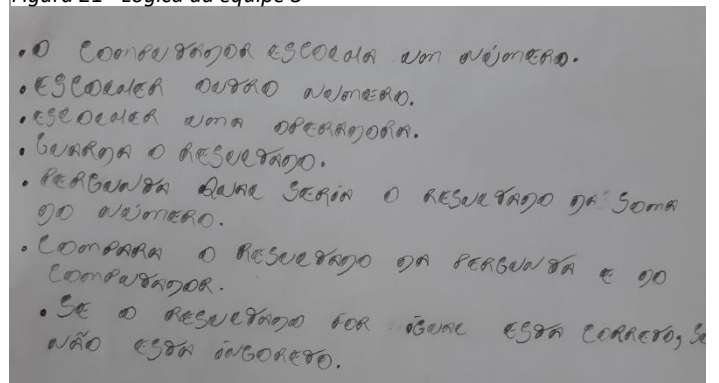 Figura 21 - Lógica da equipe 3
• O COMPUTADOR ESCOLHA UM NÚMERO.
• ESCOLHER OUTRO NÚMERO.
• ESCOLHER UMA OPERADORA.
• GUARDA O RESULTADO.
• PERGUNTA QUAL SERIA O RESULTADO DA SOMA
DO NÚMERO.
• COMPARA O RESULTADO DA PERGUNTA E DO
COMPUTADOR.
• SE O RESULTADO FOR IGUAL ESTA CORRETO, SE
NÃO ESTA INCORETO.